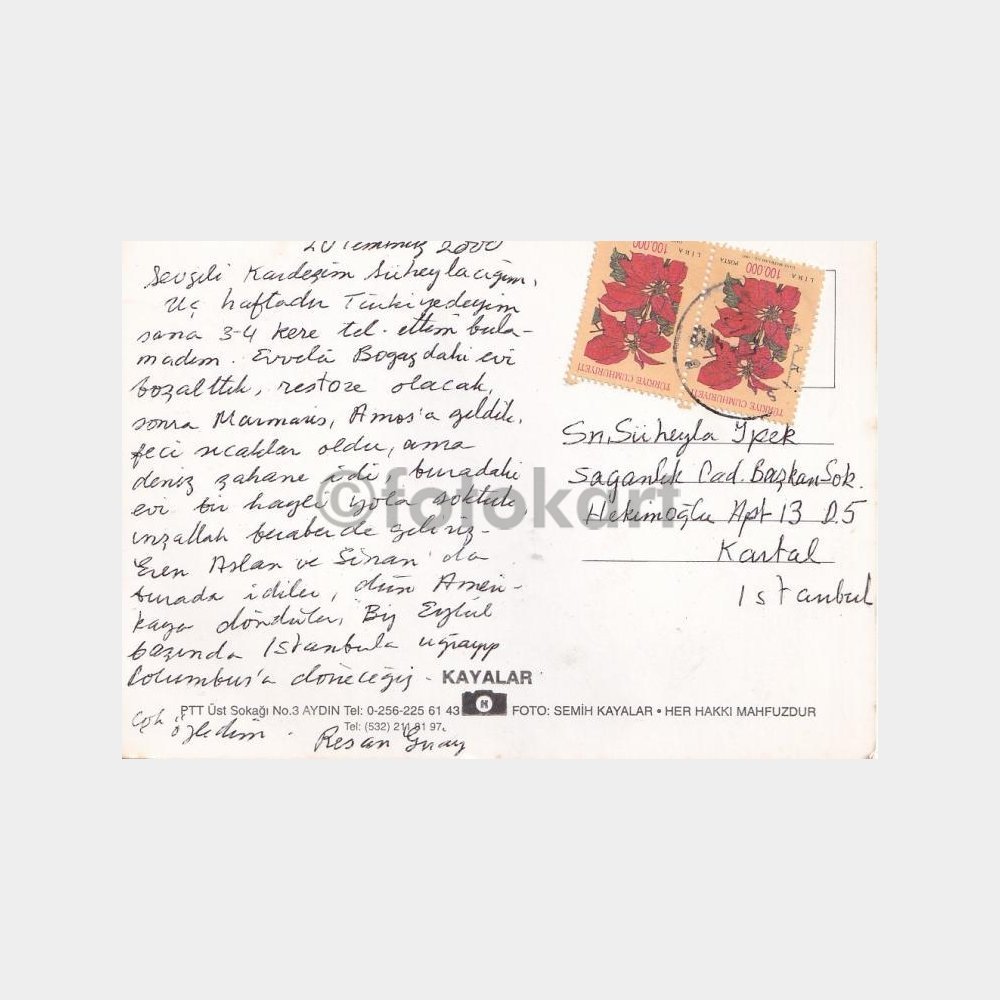 20 Temmuz 2000
Sevgili Kardeşim Süheylacığım,
Üç haftadır Türkiyedeyim
sana 3-4 kere tel. ettim bula-
madım. Evvelâ Boğazdaki evi
bozalttık, restore olacak,
sonra Marmaris, Amos'a geldik.
feci sıcaklar oldu, ama
deniz şahane idi, buradaki
evi bir hayli yola soktuk,
inşallah beraber de geliriz.
Eren Aslan ve Sinan'da
burada idiler, dün Ameri-
kaya döndüler, Biz Eylül
başında Istanbula uğrayıp
Columbus'a döneceğiz.
Çok özledim.
Sn. Süheyla İpek
Saganlık Cad. Başkan Sok.
Hekimoğlu Apt 13 D.5
Kartal
Istanbul
100.000
LİRA
POSTA
TÜRKİYE CUMHURİYETİ
100.000
LİRA
POSTA
TÜRKİYE CUMHURİYETİ
©fotokart
KAYALAR
PTT Üst Sokağı No.3 AYDIN Tel: 0-256-225 61 43
Tel: (532) 211 81 97
FOTO: SEMİH KAYALAR • HER HAKKI MAHFUZDUR